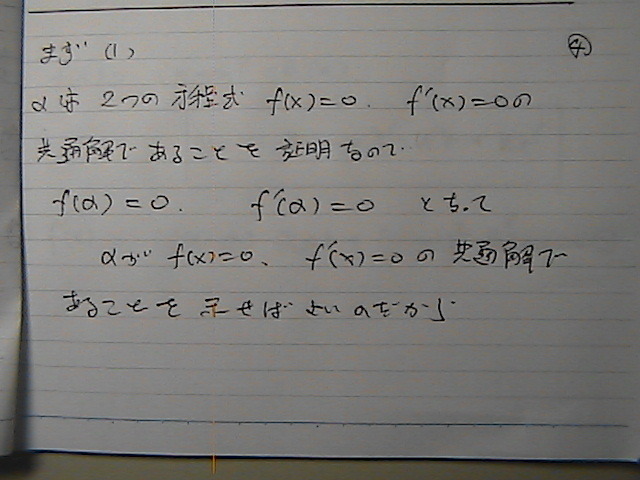 まず (1) ④
αは 2つの方程式 f(x)=0. f'(x)=0の
共通解であることを証明するので
f(α)=0. f'(α)=0 となって
αが f(x)=0、f'(x)=0 の共通解で
あることを示せばよいのだから